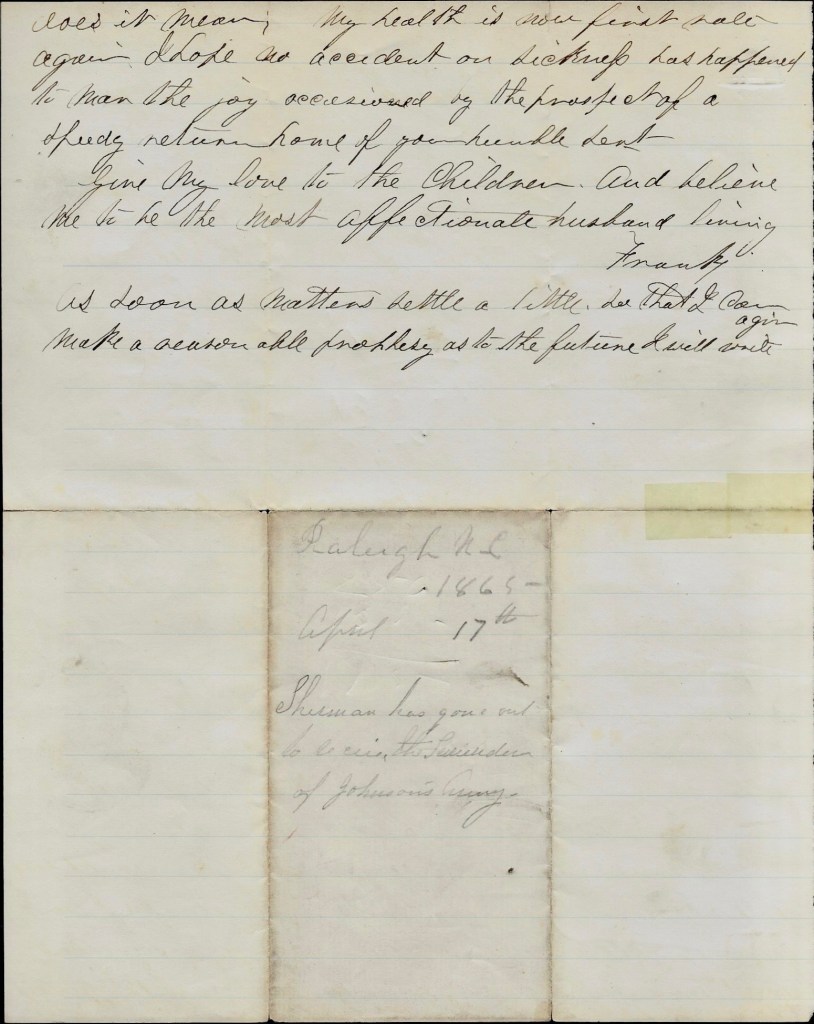 does it mean; My health is now first rate
again I hope no accident or sickness has happened
to mar the joy occasioned by the prospect of a
speedy return home of your humble servt
Give My love to the Children. And believe
me to be the most affectionate husband living
Frank
as soon as matters settle a little. so that I can
agin
make a reasonable prophesy as to the future I will write
Raleigh N C
1865-
April 17th
Sherman has gone out
to receive the Surrender
of Johnson's Army-